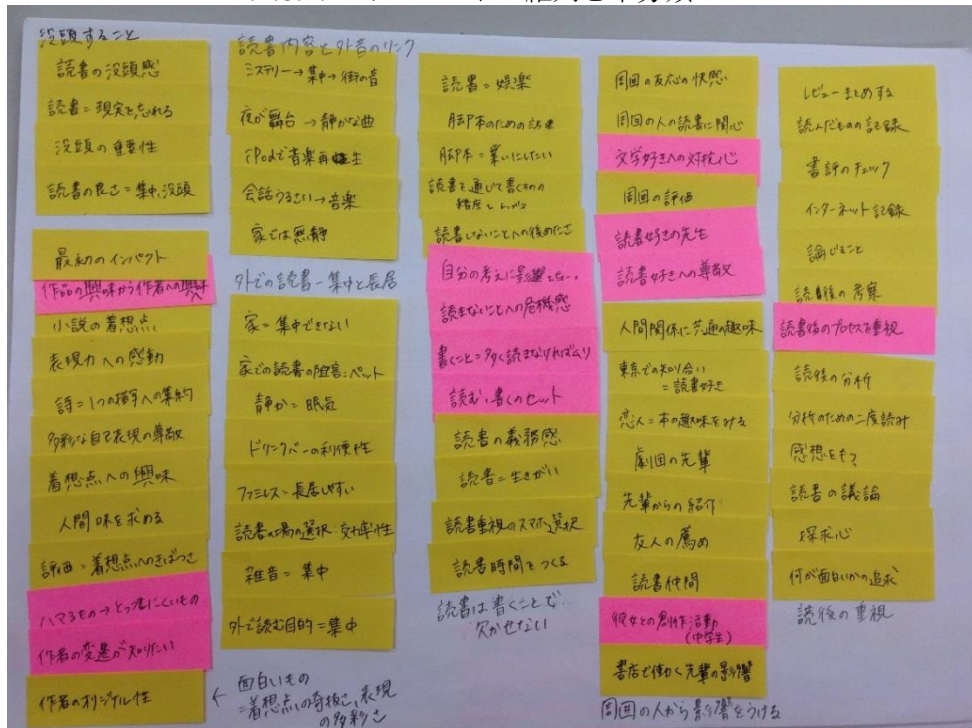 没頭すること
読書の没頭感
読書=現実を忘れる
没頭の重要性
読書の良さ=集中、没頭
最初のインパクト
作品の興味から作者への興味
小説の着想点
表現力への感動
詩=1つの描写への集約
多彩な自己表現の尊敬
着想点への興味
人間味を求める
評価=着想点へのきばつさ
ハマるもの→とっ濃にくいもの
作者の変遷が知りたい
作者のオリジナル性
← 面白いもの
=着想点の奇抜さ、表現
の多彩さ
読書内容と外音のリンク
ミステリー→集中→街の音
夜が舞台→静かな曲
iPodで音楽再生
会話うるさい→音楽
家では無静
外での読書-集中と長居
家=集中できない
家での読書の阻害:ペット
静か=眠気
ドリンクバーの利便性
ファミレス=長居しやすい
読書の場の選択:効率性
雑音=集中
外で読む目的=集中
読書=娯楽
脚本のための読書
脚本=業いにしたい
読書を通じて書くための
読書しないことへの後めたさ
自分の考えに影響
読まないことへの危機感
書くこと=多く読まなければムリ
読む、書くのセット
読書の義務感
読書=生きがい
読書重視のスマホ選択
読書時間をつくる
読書は書くことで
欠かせない
周囲の反応の快感
周囲の人の読書に関心
文学好きへの対抗心
周囲の評価
読書好きの先生
読書好きへの尊敬
人間関係に共通の趣味
東京での知り合い
=読書好き
恋人=本の趣味をみる
劇団の先輩
先輩からの紹介
友人の薦め
読書仲間
彼女との創作活動
(中学生)
書店で働く先輩の影響
周囲の人から影響をうける
レビューまとめする
読んだものの記録
書評のチェック
インターネット記録
論じること
読後の考察
読書後のプロセスを重視
読後の分析
分析のための二度読み
感想をもつ
読書の議論
探求心
何が面白いかの追求
読後の重視